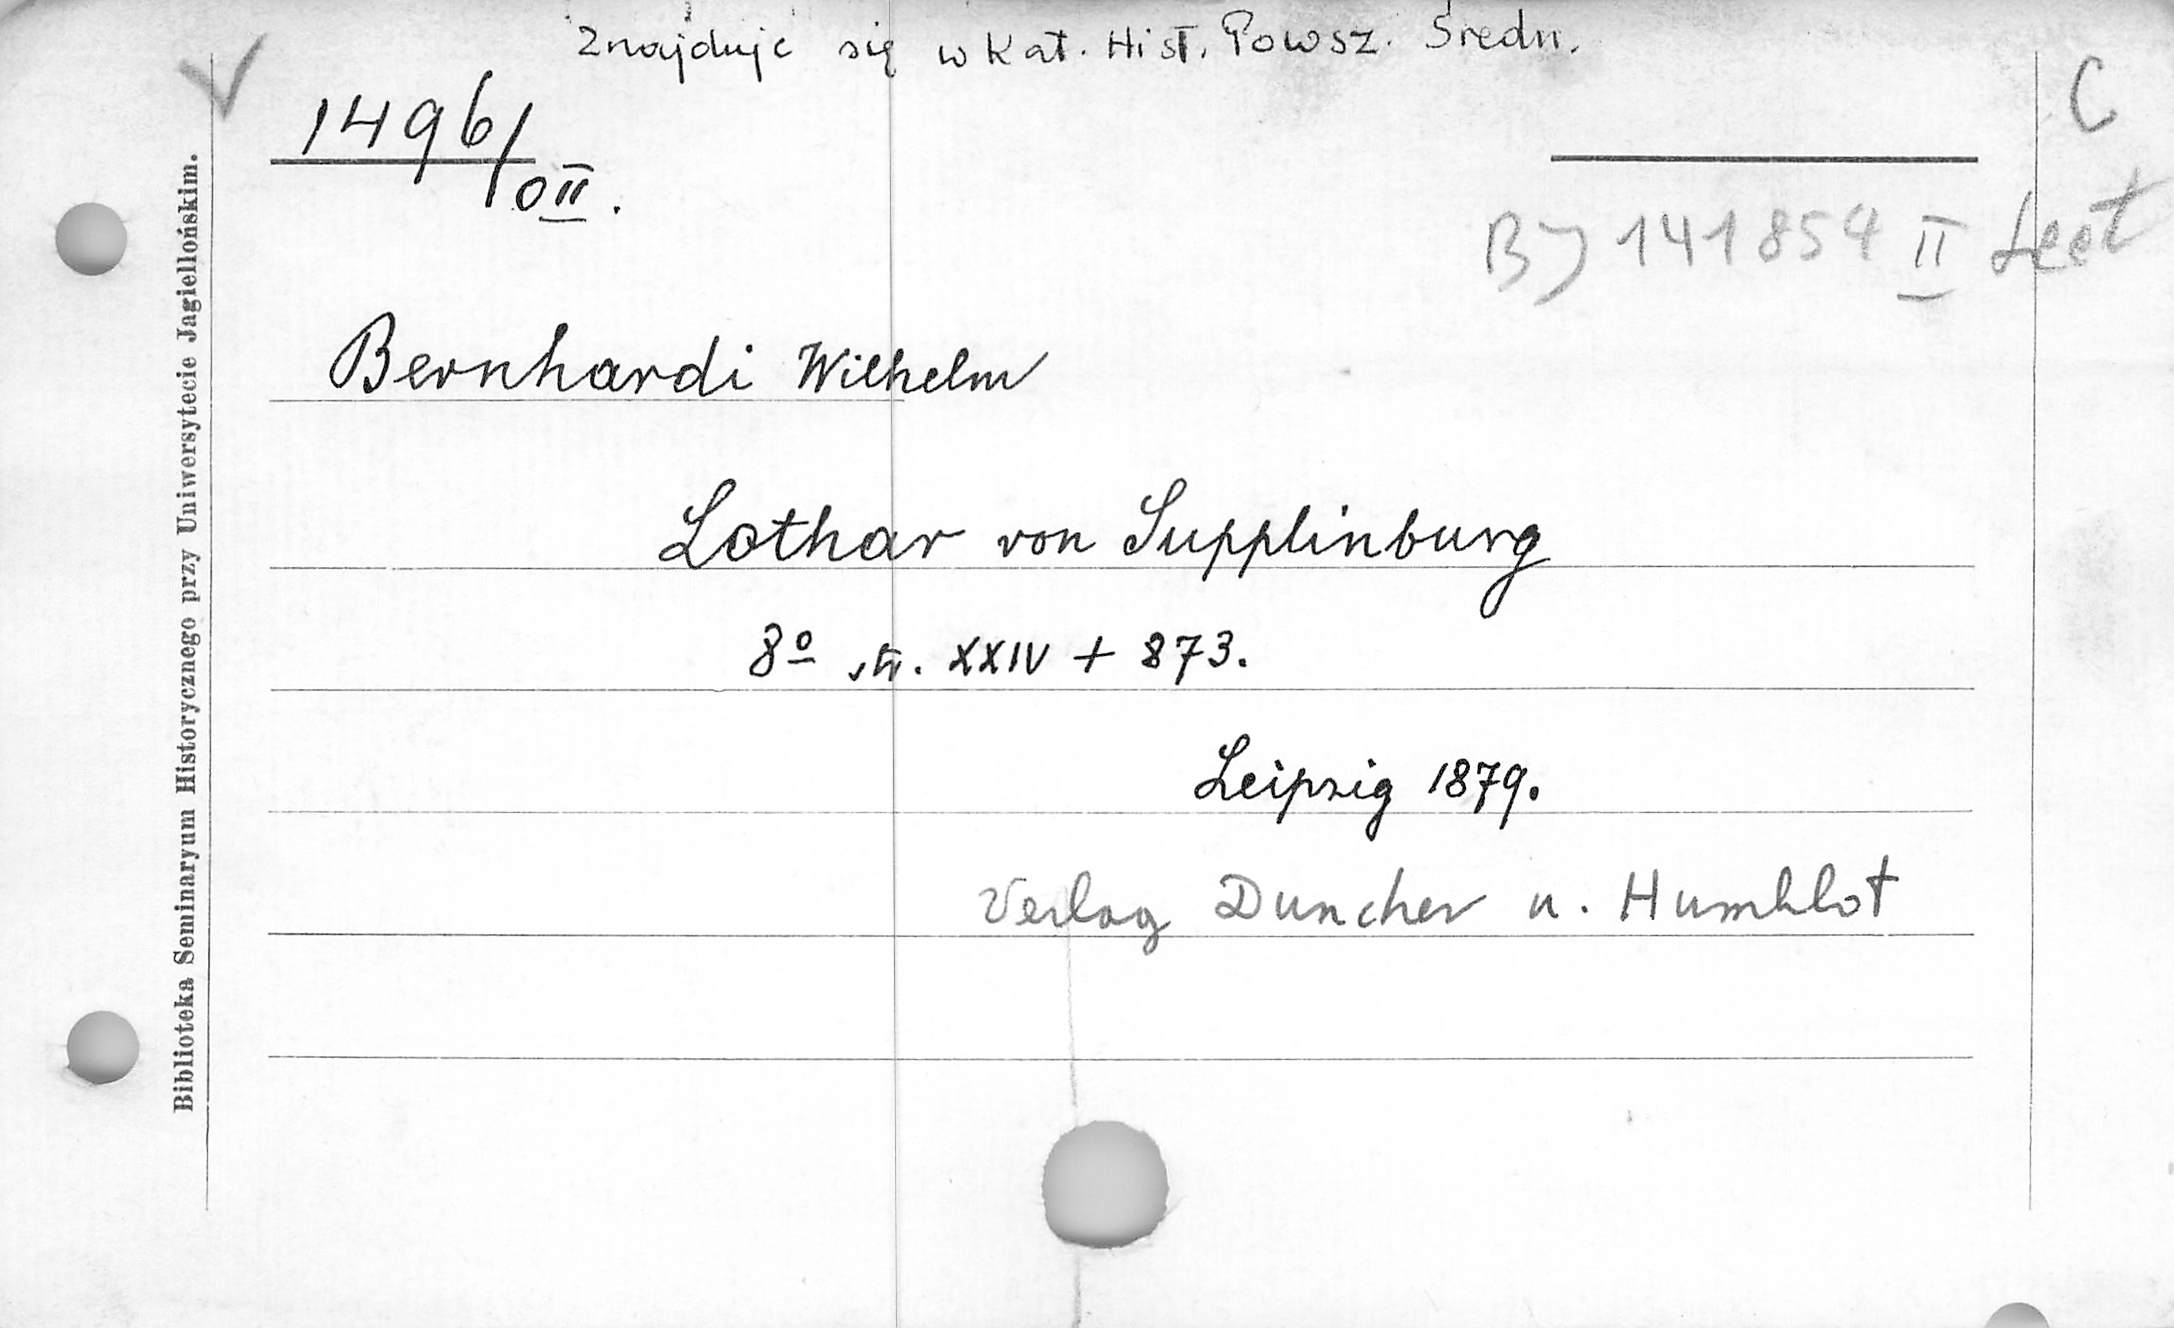 Znajduje się w Kat. Hist. Powsz. Średn.
C
1496/OII.
BJ 141854 II Lect
Bernhardi Wilhelm
Lothar von Supplinburg
8º str. XXIV + 873.
Leipzig 1879.
Verlag Duncker u. Humblot
Biblioteka Seminaryum Historycznego przy Uniwersytecie Jagiellońskim.